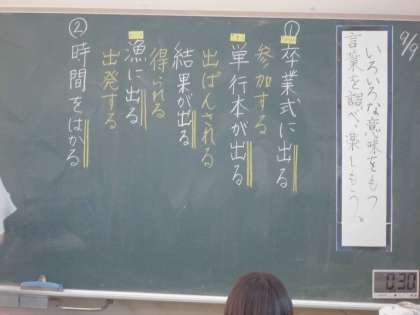 9/9
いろいろな意味をもつ
言葉を調べ、楽しもう。
①卒業式に出る
参加する
単行本が出る
出ぱんされる
結果が出る
得られる
漁に出る
出発する
②時間をはかる
0:30